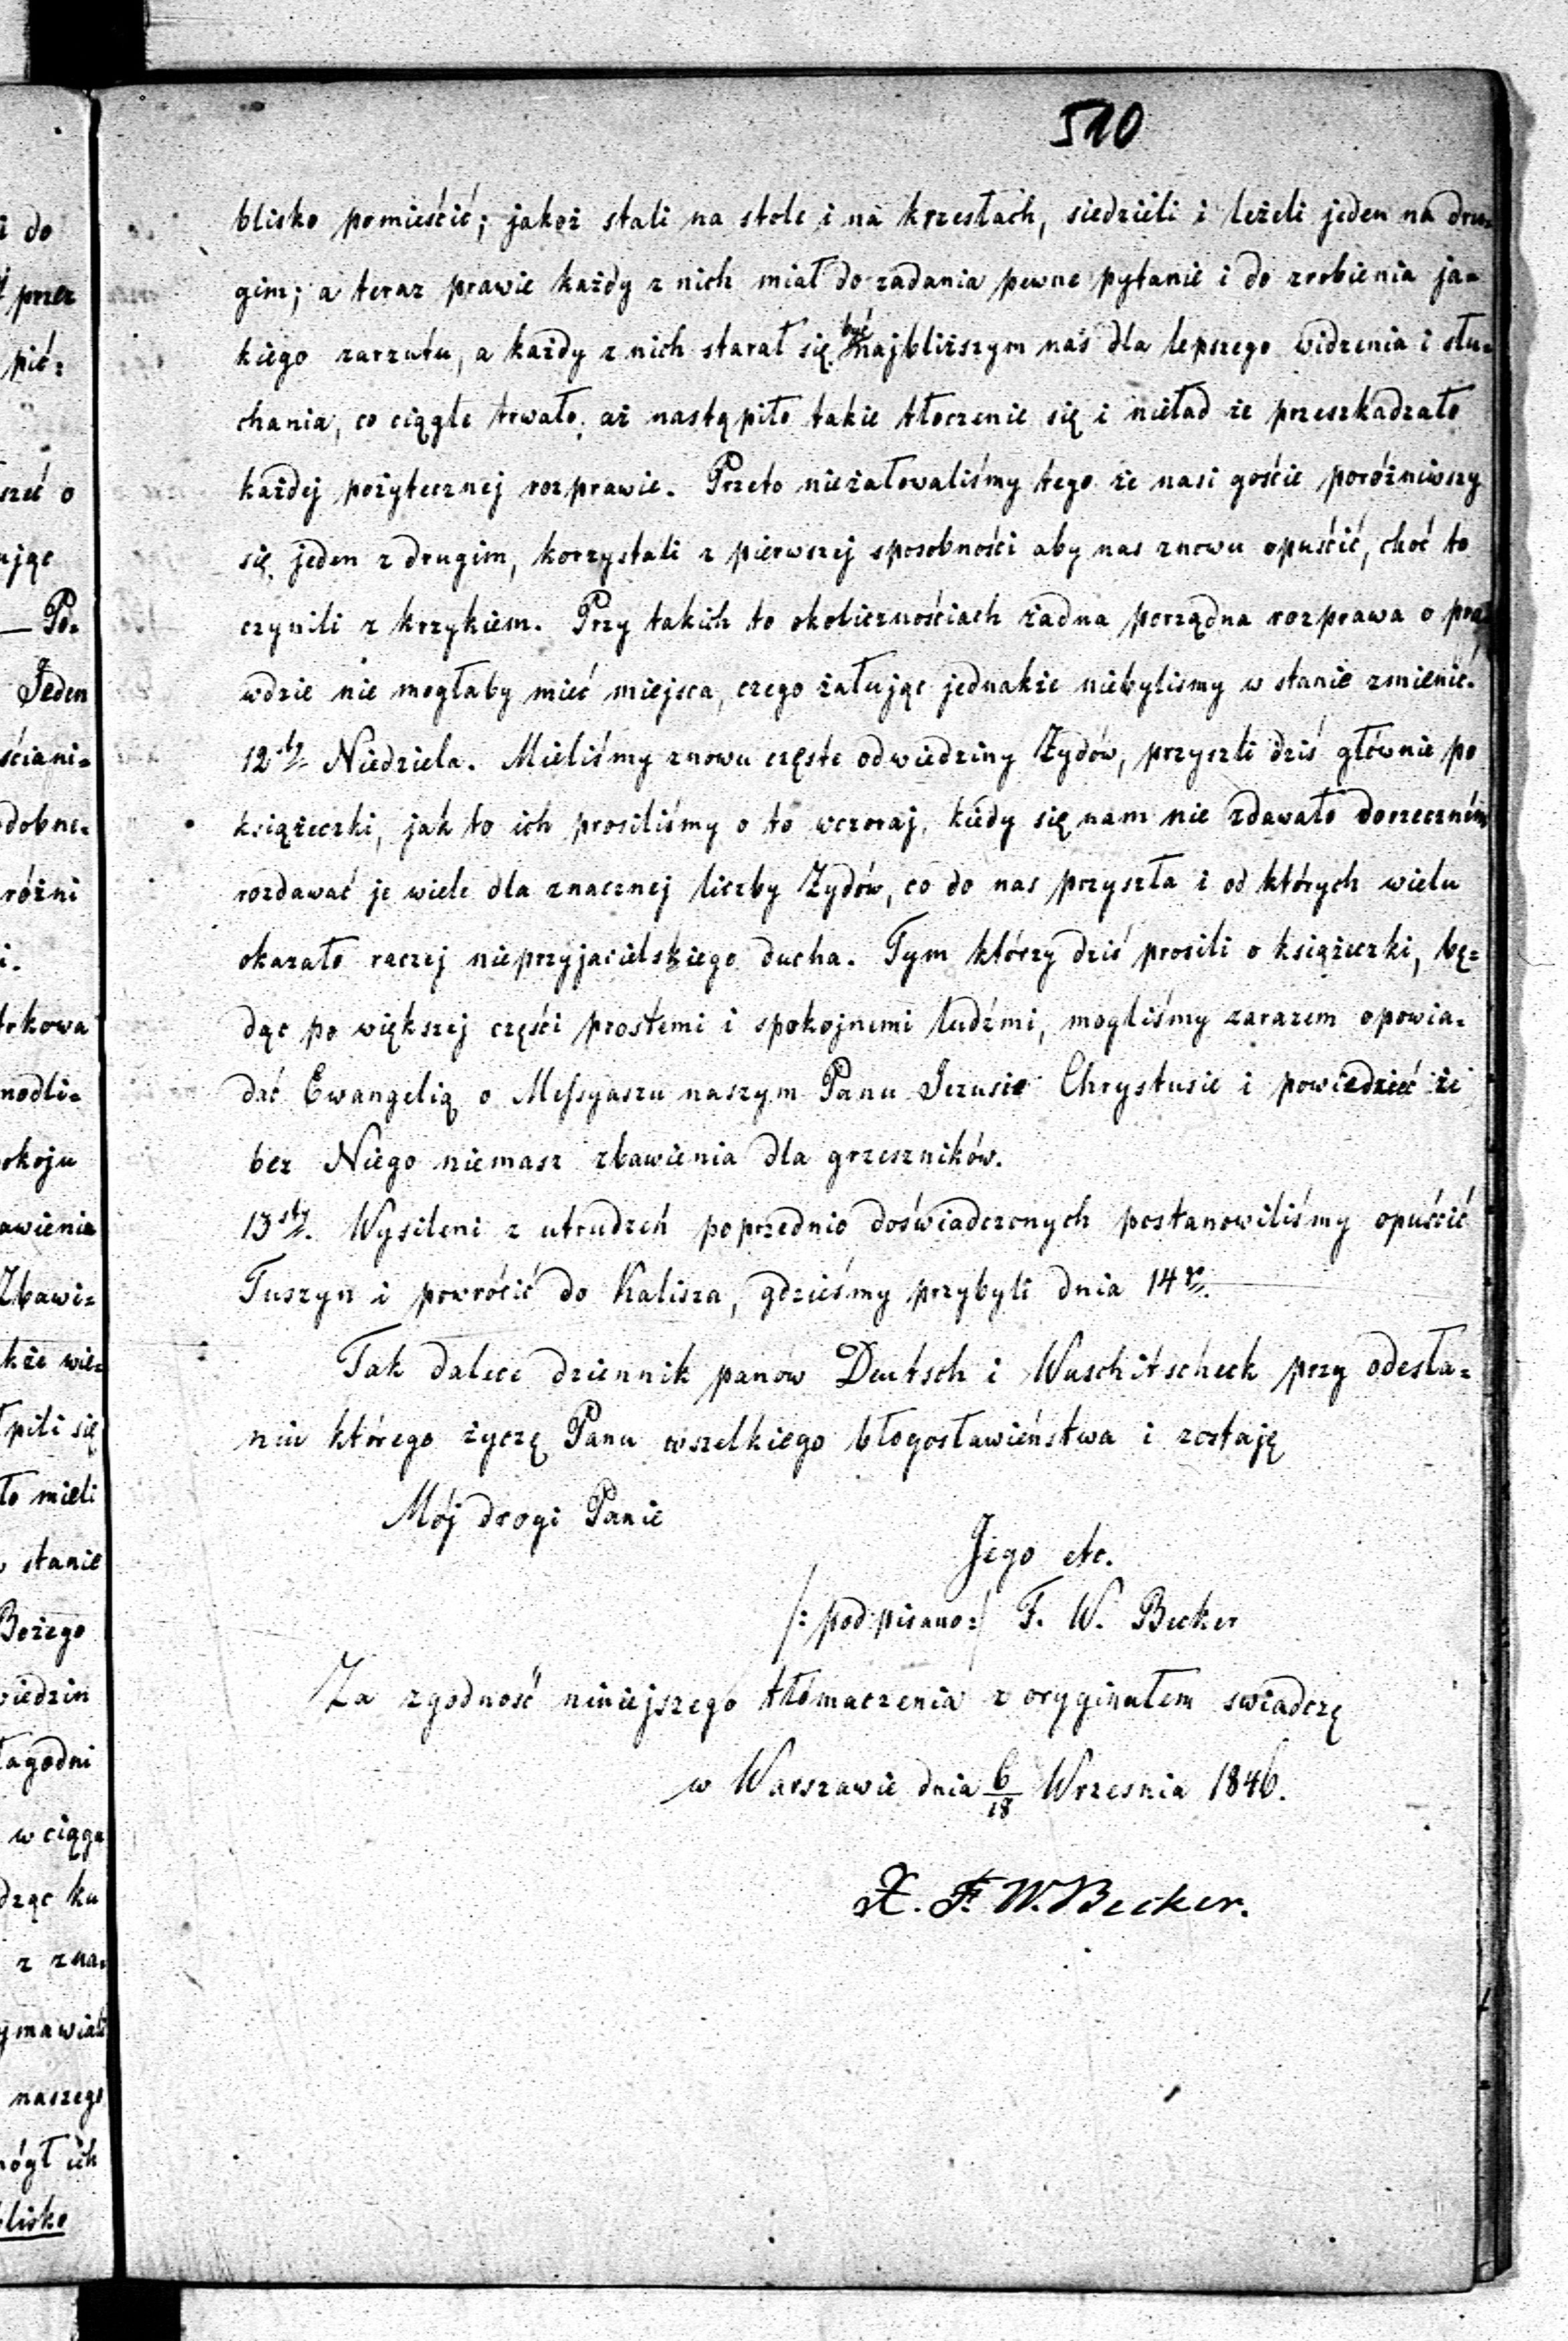 510
blisko pomieścić; jakoż stali na stole i na krzesłach, siedzieli i leżeli jeden na dru-
gim; a teraz prawie każdy z nich miał do zadania pewne pytanie i do zrobienia ja-
kiego zarzutu, a każdy z nich starał się być najbliższym nas dla lepszego widzenia i słu-
chania, co ciągle trwało, aż nastąpiło takie tłoczenie się i nieład że przeszkadzało
każdej pożytecznej rozprawie. Przeto nieżałowaliśmy tego że nasi goście poróżniwszy
się jeden z drugim, korzystali z pierwszej sposobności aby nas znowu opuścić, choć to
czynili z krzykiem. Przy takich to okolicznościach żadna porządna rozprawa o pra-
wdzie nie mogłaby mieć miejsca, czego żałując jednakże niebyliśmy w stanie zmienić.
12sty Niedziela. Mieliśmy znowu częste odwiedziny Żydów, przyszli dziś głównie po
książeczki, jak to ich prosiliśmy o to wczoraj, kiedy się nam nie zdawało dorzeczném
rozdawać je wiele dla znacznej liczby Żydów, co do nas przyszła i od których wielu
okazało raczej nieprzyjacielskiego ducha. Tym którzy dziś prosili o książeczki, bę-
dąc po większej części prostemi i spokojnemi ludźmi, mogliśmy zarazem opowia-
dać Ewangelią o Messyaszu naszym Panu Jezusie Chrystusie i powiedzieć że
bez Niego niemasz zbawienia dla grzeszników.
13sty. Wysileni z utrudzeń poprzednio doświadczonych postanowiliśmy opuścić
Tuszyn i powrócić do Kalisza, gdzieśmy przybyli dnia 14go.
Tak dalece dziennik panów Deutsch i Waschitscheck przy odesła-
niu którego życzę Panu wszelkiego błogosławieństwa i zostaję
Mój drogi Panie
Jego etc.
/: podpisano :/ F. W. Becker
Za zgodność niniejszego tłómaczenia z oryginałem swiadczę
w Warszawie dnia 6/18 Wrzesnia 1846.
X. F. W. Becker.